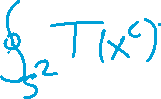 ∮_{S^2} T(x^c).